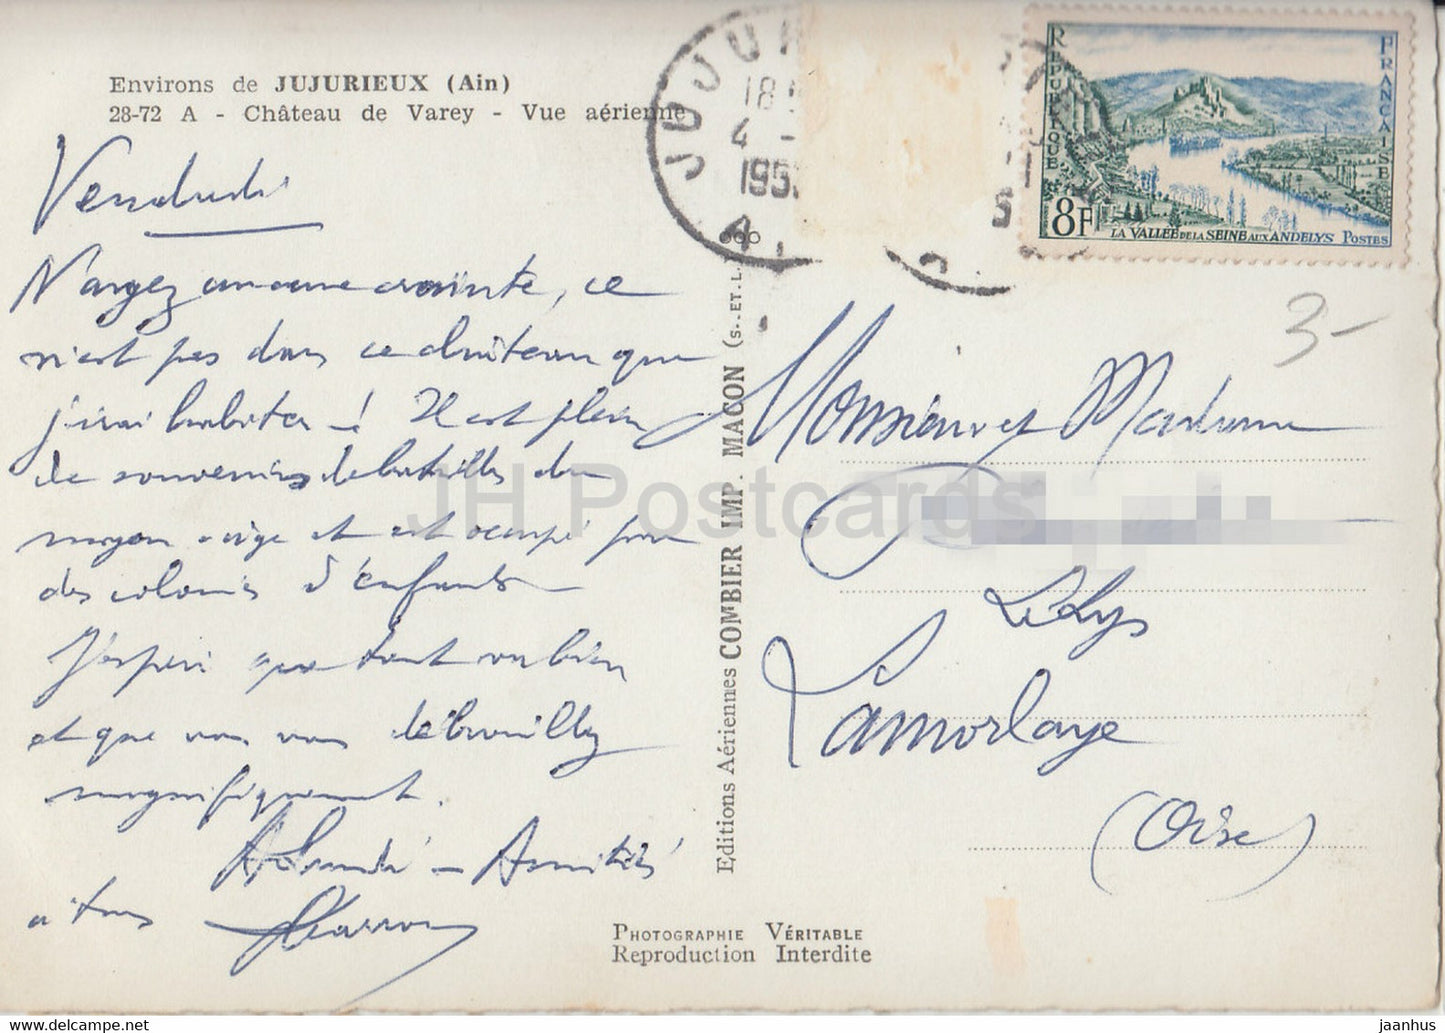 Environs de JUJURIEUX (Ain)
28-72 A - Château de Varey - Vue aérienne
Vendredi
N'ayez aucune crainte, ce
n'est pas dans ce château que
j'irai habiter ! Il est plein
de souvenirs de batailles du
moyen-age et est occupé par
des colonies d'enfants
J'espère que tout va bien
et que vous vous débrouillez
magnifiquement.
A lundi - Amitiés
à tous
JUJU
18
4 -
195
A
REPUBLIQUE FRANCAISE
8F
LA VALLEE DE LA SEINE AUX ANDELYS POSTES
3-
Monsieur et Madame
Le Lys
Lamorlaye
(Oise)
Editions Aériennes COMBIER IMP. MACON (S.-ET-L.)
PHOTOGRAPHIE VÉRITABLE
Reproduction Interdite
JH Postcards
delcampe.net
jaanhus